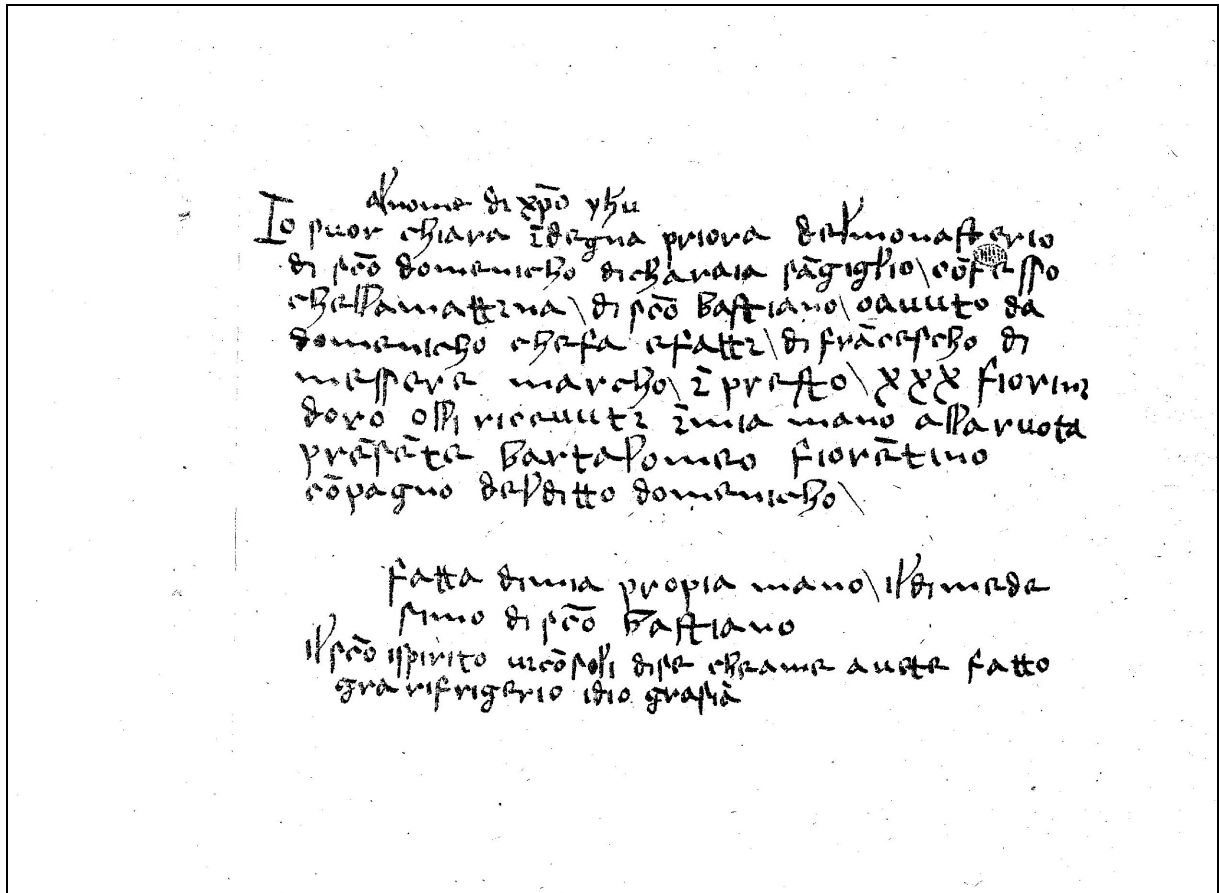 al nome di xp̄o yh̄u
Io suor chiara ī degna priora del monasterio
di sc̄o domenicho di charaia sāgiglio \ cōfesso
chella mattina \ di sc̄o bastiano \ o avuto da
domenicho che fa e fatti \ di frācescho di
messere marcho \ ī presto \ XXX fiorini
doro olli ricevuti ī mia mano alla ruota
presēte bartalomeo fiorētino
cōpagno del ditto domenicho \
fatta di mia propia mano \ il di mede
simo di sc̄o bastiano
il sc̄o ispirito vi cōsoli di se che a me avete fatto
gra rifrigerio idio grasia